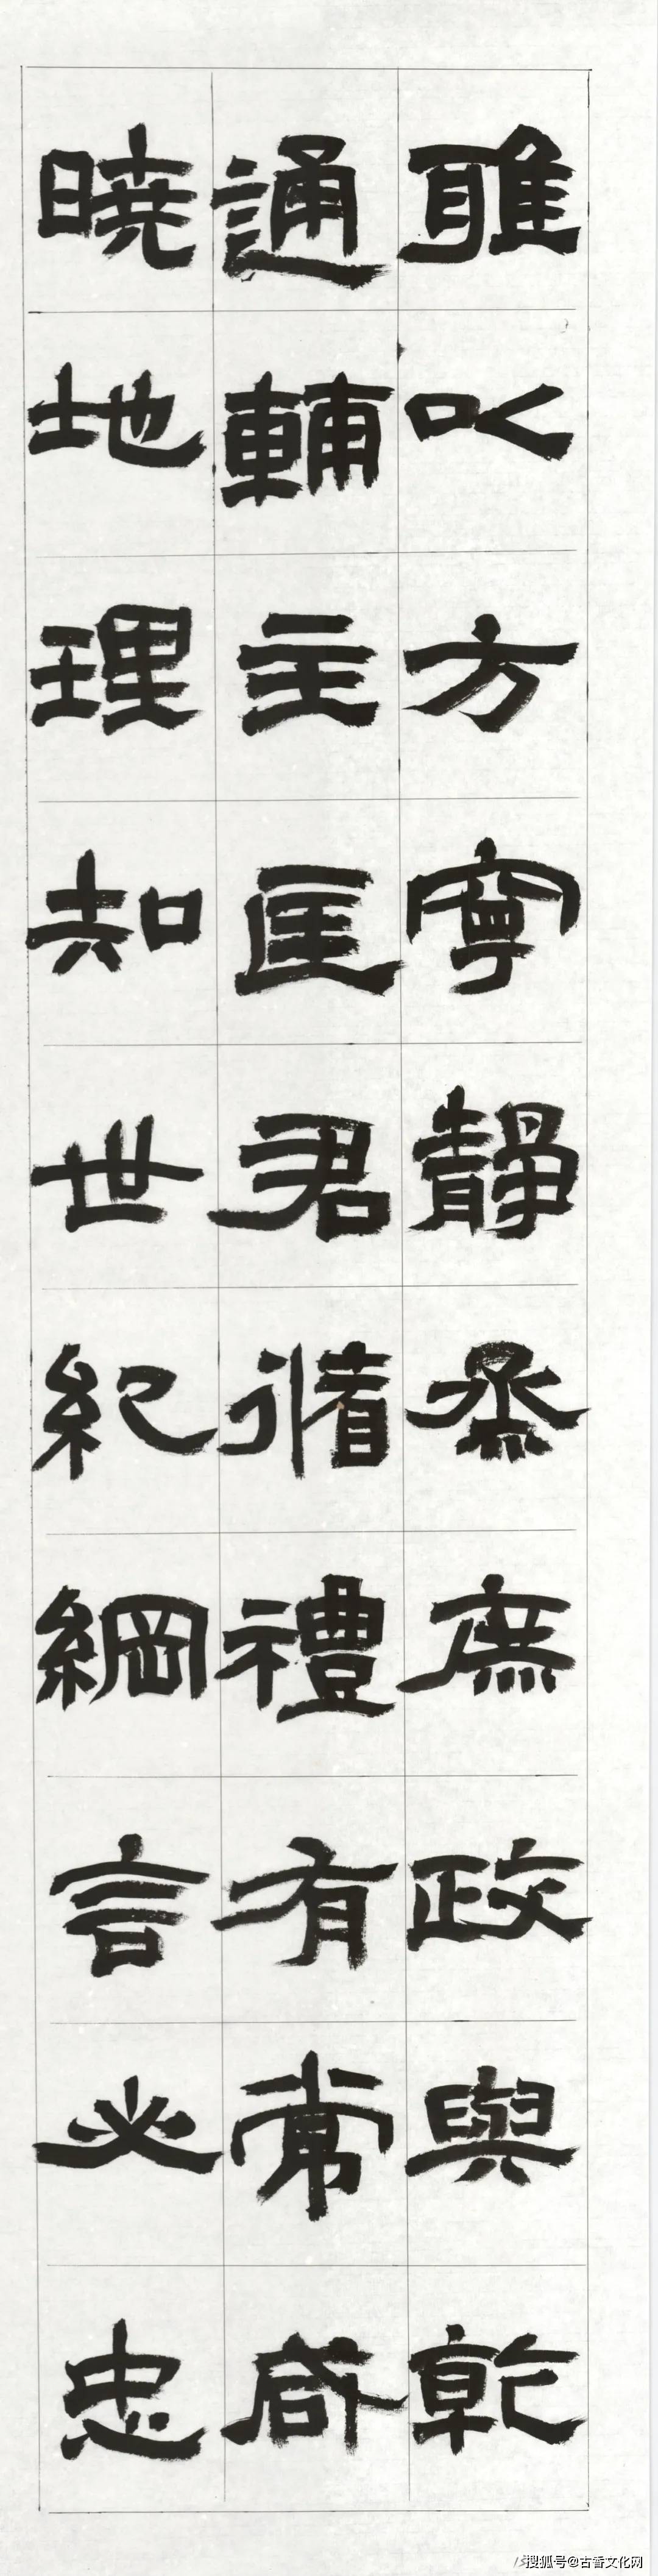 雅以方寧靜烝庶政與乾
通輔主匡君循禮有常咸
曉地理知世紀綱言必忠
搜狐号@古香文化网